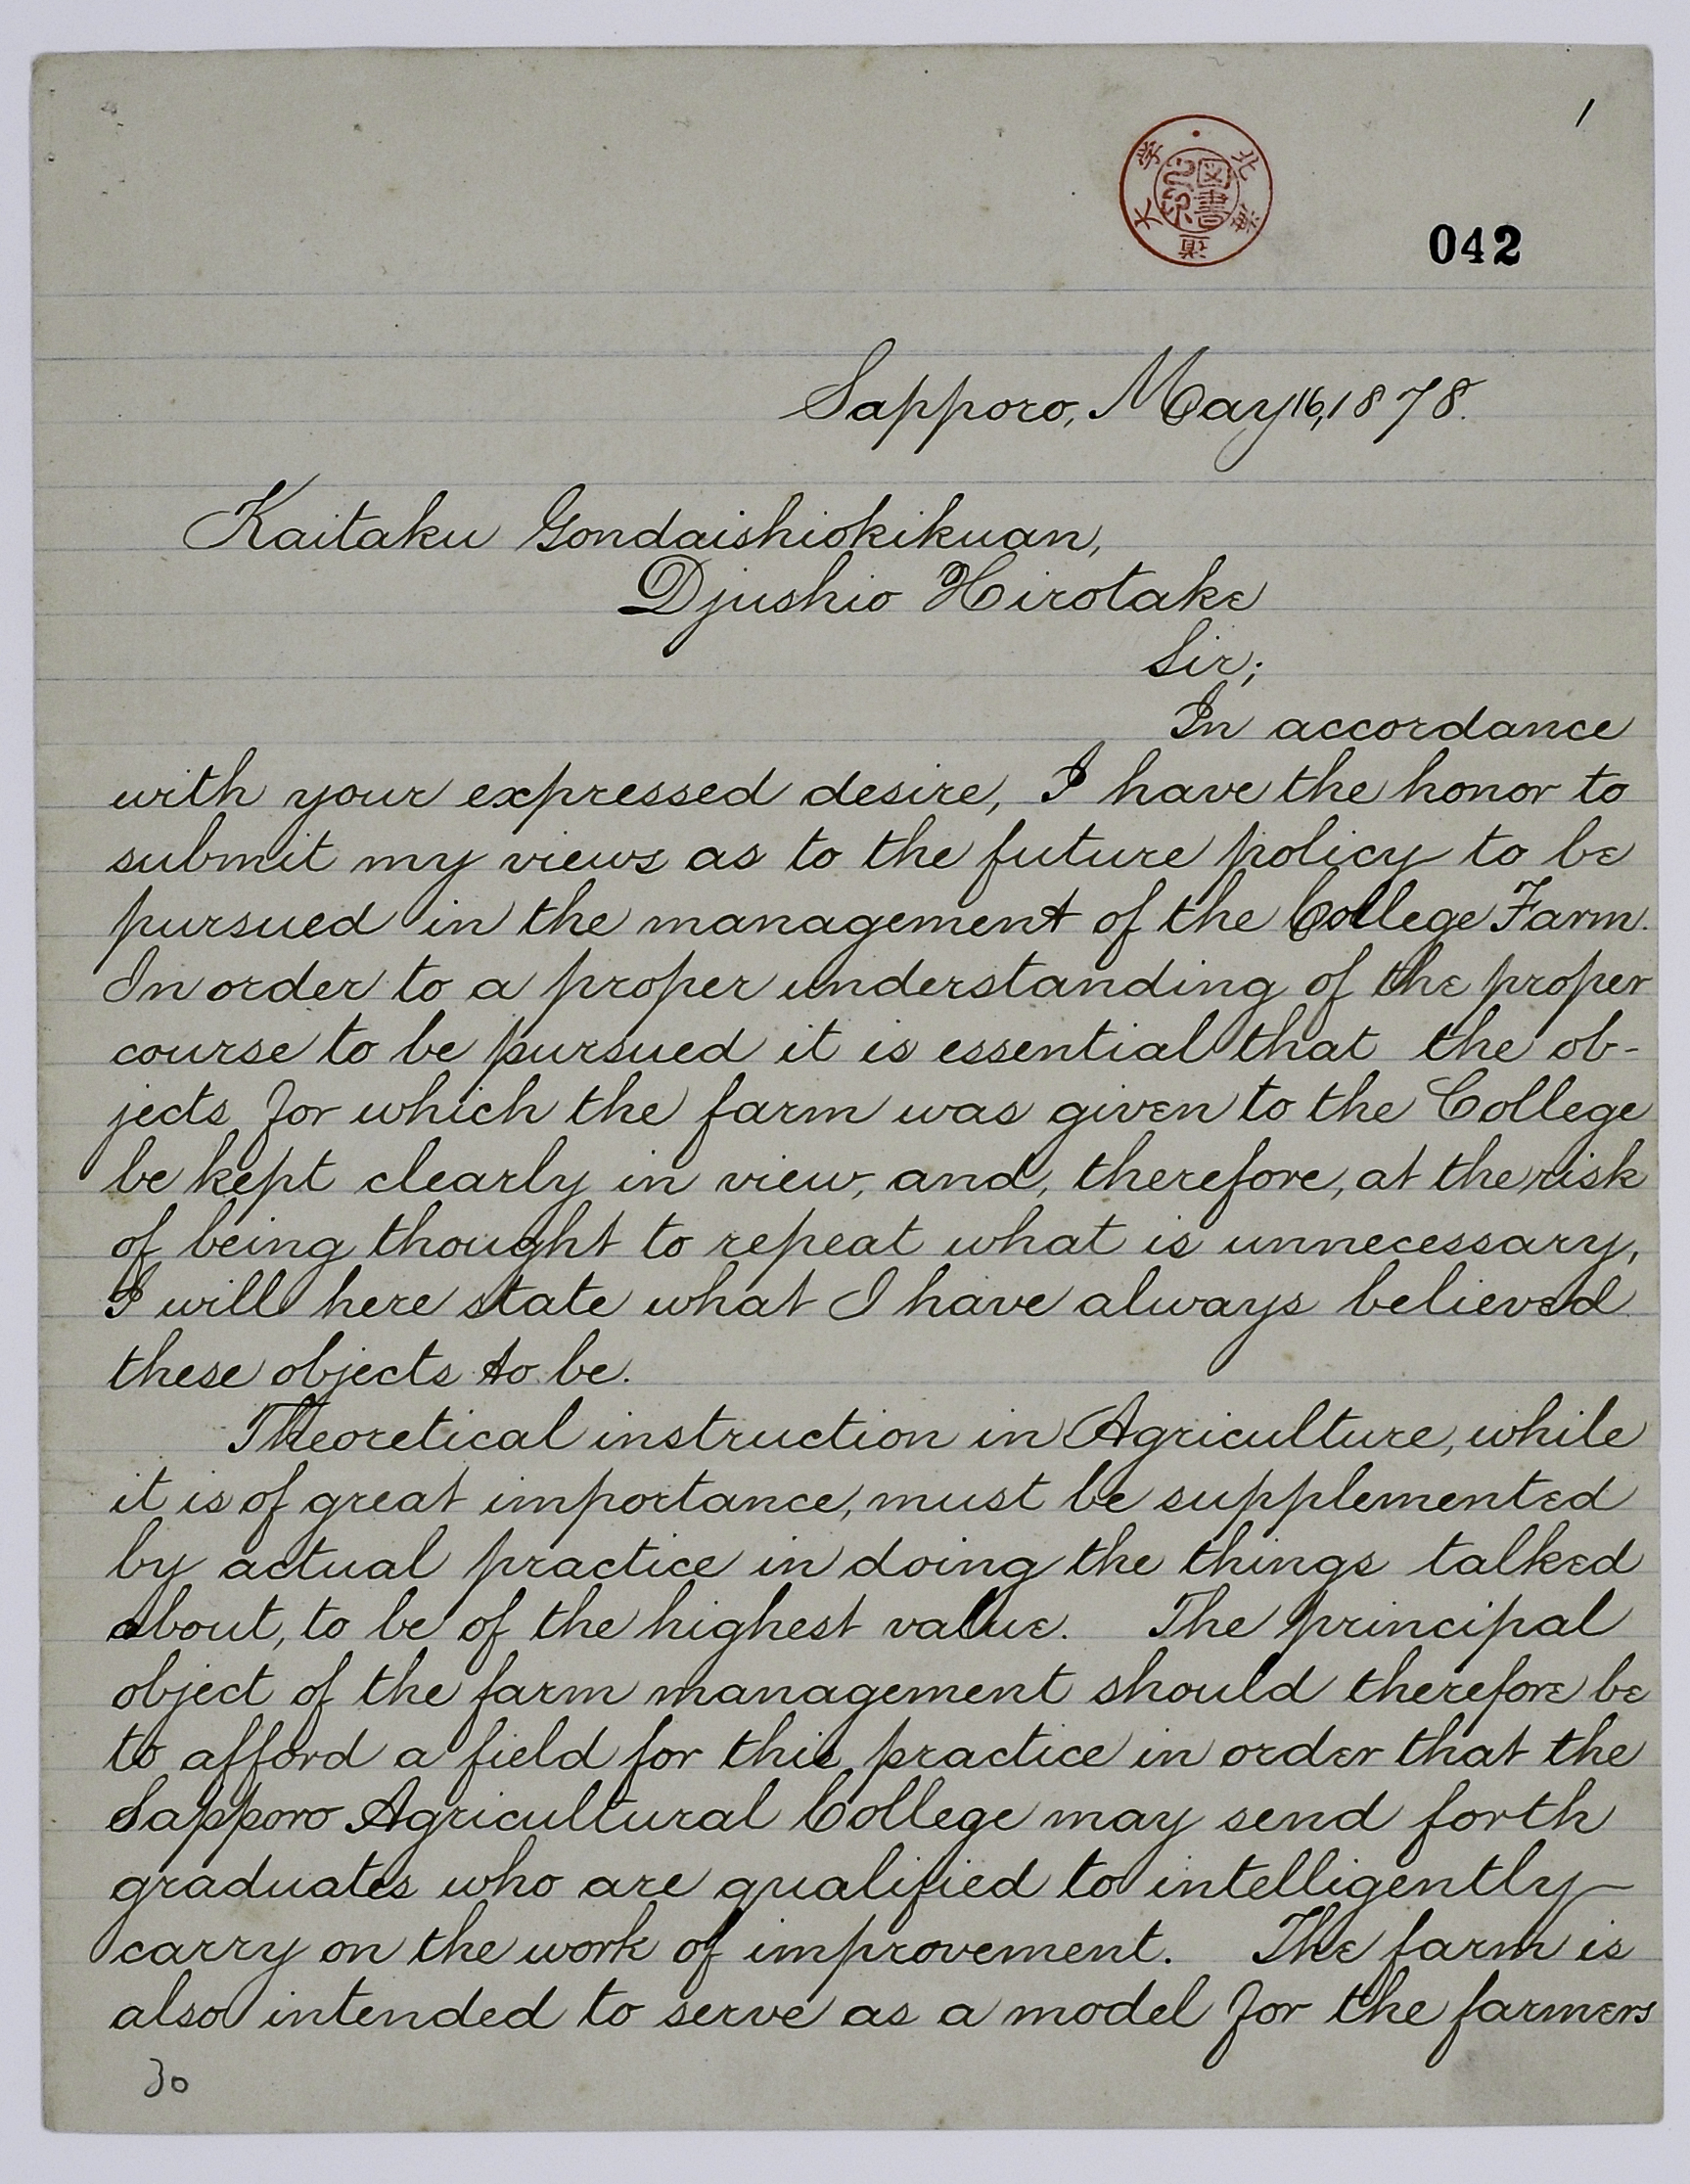 1
北海道大学
図書
042
Sapporo, May 16, 1878.
Kaitaku Gondaishiokikuan,
Djushio Hirotake
Sir;
In accordance
with your expressed desire, I have the honor to
submit my views as to the future policy to be
pursued in the management of the College Farm.
In order to a proper understanding of the proper
course to be pursued it is essential that the ob-
jects for which the farm was given to the College
be kept clearly in view, and, therefore, at the risk
of being thought to repeat what is unnecessary,
I will here state what I have always believed
these objects to be.
Theoretical instruction in Agriculture, while
it is of great importance, must be supplemented
by actual practice in doing the things talked
about, to be of the highest value. The principal
object of the farm management should therefore be
to afford a field for this practice in order that the
Sapporo Agricultural College may send forth
graduates who are qualified to intelligently
carry on the work of improvement. The farm is
also intended to serve as a model for the farmers
30